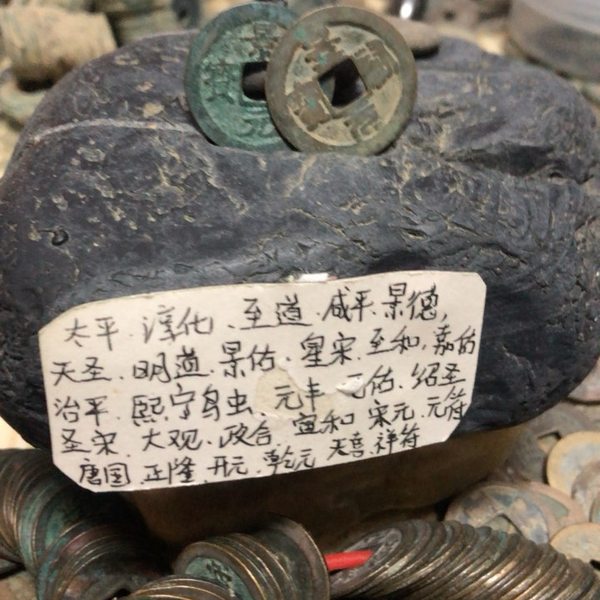 景
寶
元
太平、淳化、至道、咸平、景德,
天圣、明道、景佑、星宋、至和、嘉佑
治平、熙宁身虫 元丰 元佑、绍圣
圣宋、大观、政合、宣和 宋元、元符
唐国、正隆、开元、乾元 天喜、祥符